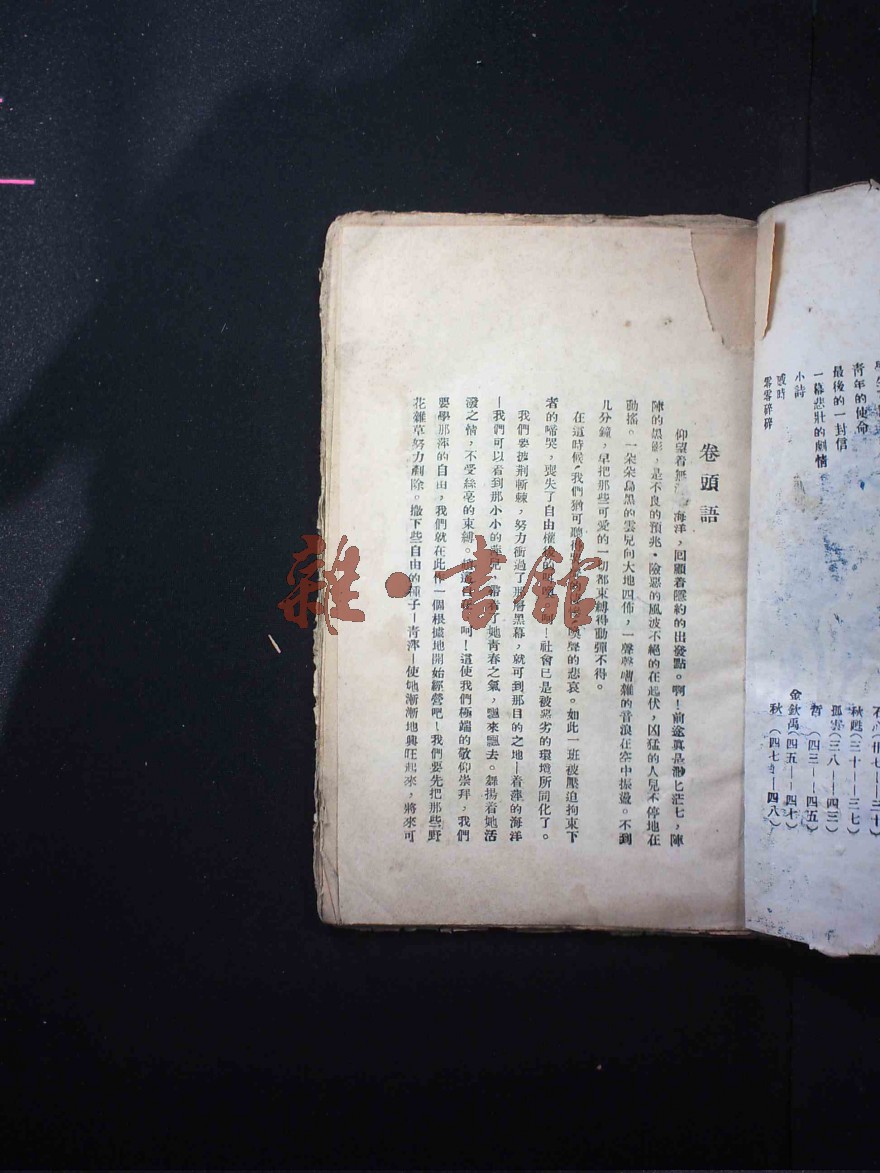 青年的使命
最後的一封信
一幕悲壯的劇情
小詩
感時
零零碎碎
秋甦（三十——三七）
（三八——四三）
哲（四三——四五）
金欽禹（四五——四十）
秋（四七——四八）
卷頭語
仰望着無 海洋，回顧着隱約的出發點。啊！前途眞是渺匕茫七，陣
陣的黑影，是不良的預兆·險惡的風波不絕的在起伏，凶猛的人兒不停地在
動搖。一朵朵烏黑的雲兒向大地四佈，一聲聲嘈雜的音浪在空中振盪。不到
几分鐘，早把那些可愛的一切都束縛得動彈不得。
在這時候，我們猶可聽 喚聲的悲哀。如此一班被壓迫拘束下
者的啼哭，喪失了自由權 ！社會已是被惡劣的環境所同化了。
我們要披荆斬棘，努力衝過了那層黑幕，就可到那目的之地—着萍的海洋
—我們可以看到那小小的 兒 帶着了她青春之氣，飄來飄去。舞揚着她活
潑之情，不受絲毫的束縛。 呵！這使我們極端的敬仰崇拜，我們
要學那萍的自由，我們就在此作一個根據地開始經營吧！我們要先把那些野
花雜草努力剷除。撒下些自由的種子—青萍—使她漸漸地興旺起來，將來可
雜·書館